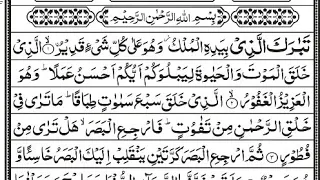 بِسْمِ اللّٰهِ الرَّحْمٰنِ الرَّحِيْمِ
تَبٰرَكَ الَّذِىْ بِيَدِهِ الْمُلْكُ ۫ وَهُوَ عَلٰى كُلِّ شَىْءٍ قَدِيْرُ ۙ ۨالَّذِىْ
خَلَقَ الْمَوْتَ وَالْحَيٰوةَ لِيَبْلُوَكُمْ اَيُّكُمْ اَحْسَنُ عَمَلًا ؕ وَهُوَ
الْعَزِيْزُ الْغَفُوْرُ ۙ الَّذِىْ خَلَقَ سَبْعَ سَمٰوٰتٍ طِبَاقًا ؕ مَا تَرٰى فِىْ
خَلْقِ الرَّحْمٰنِ مِنْ تَفٰوُتٍ ؕ فَارْجِعِ الْبَصَرَ ۙ هَلْ تَرٰى مِنْ
فُطُوْرٍ ثُمَّ ارْجِعِ الْبَصَرَ كَرَّتَيْنِ يَنْقَلِبْ اِلَيْكَ الْبَصَرُ خَاسِئًا وَّ